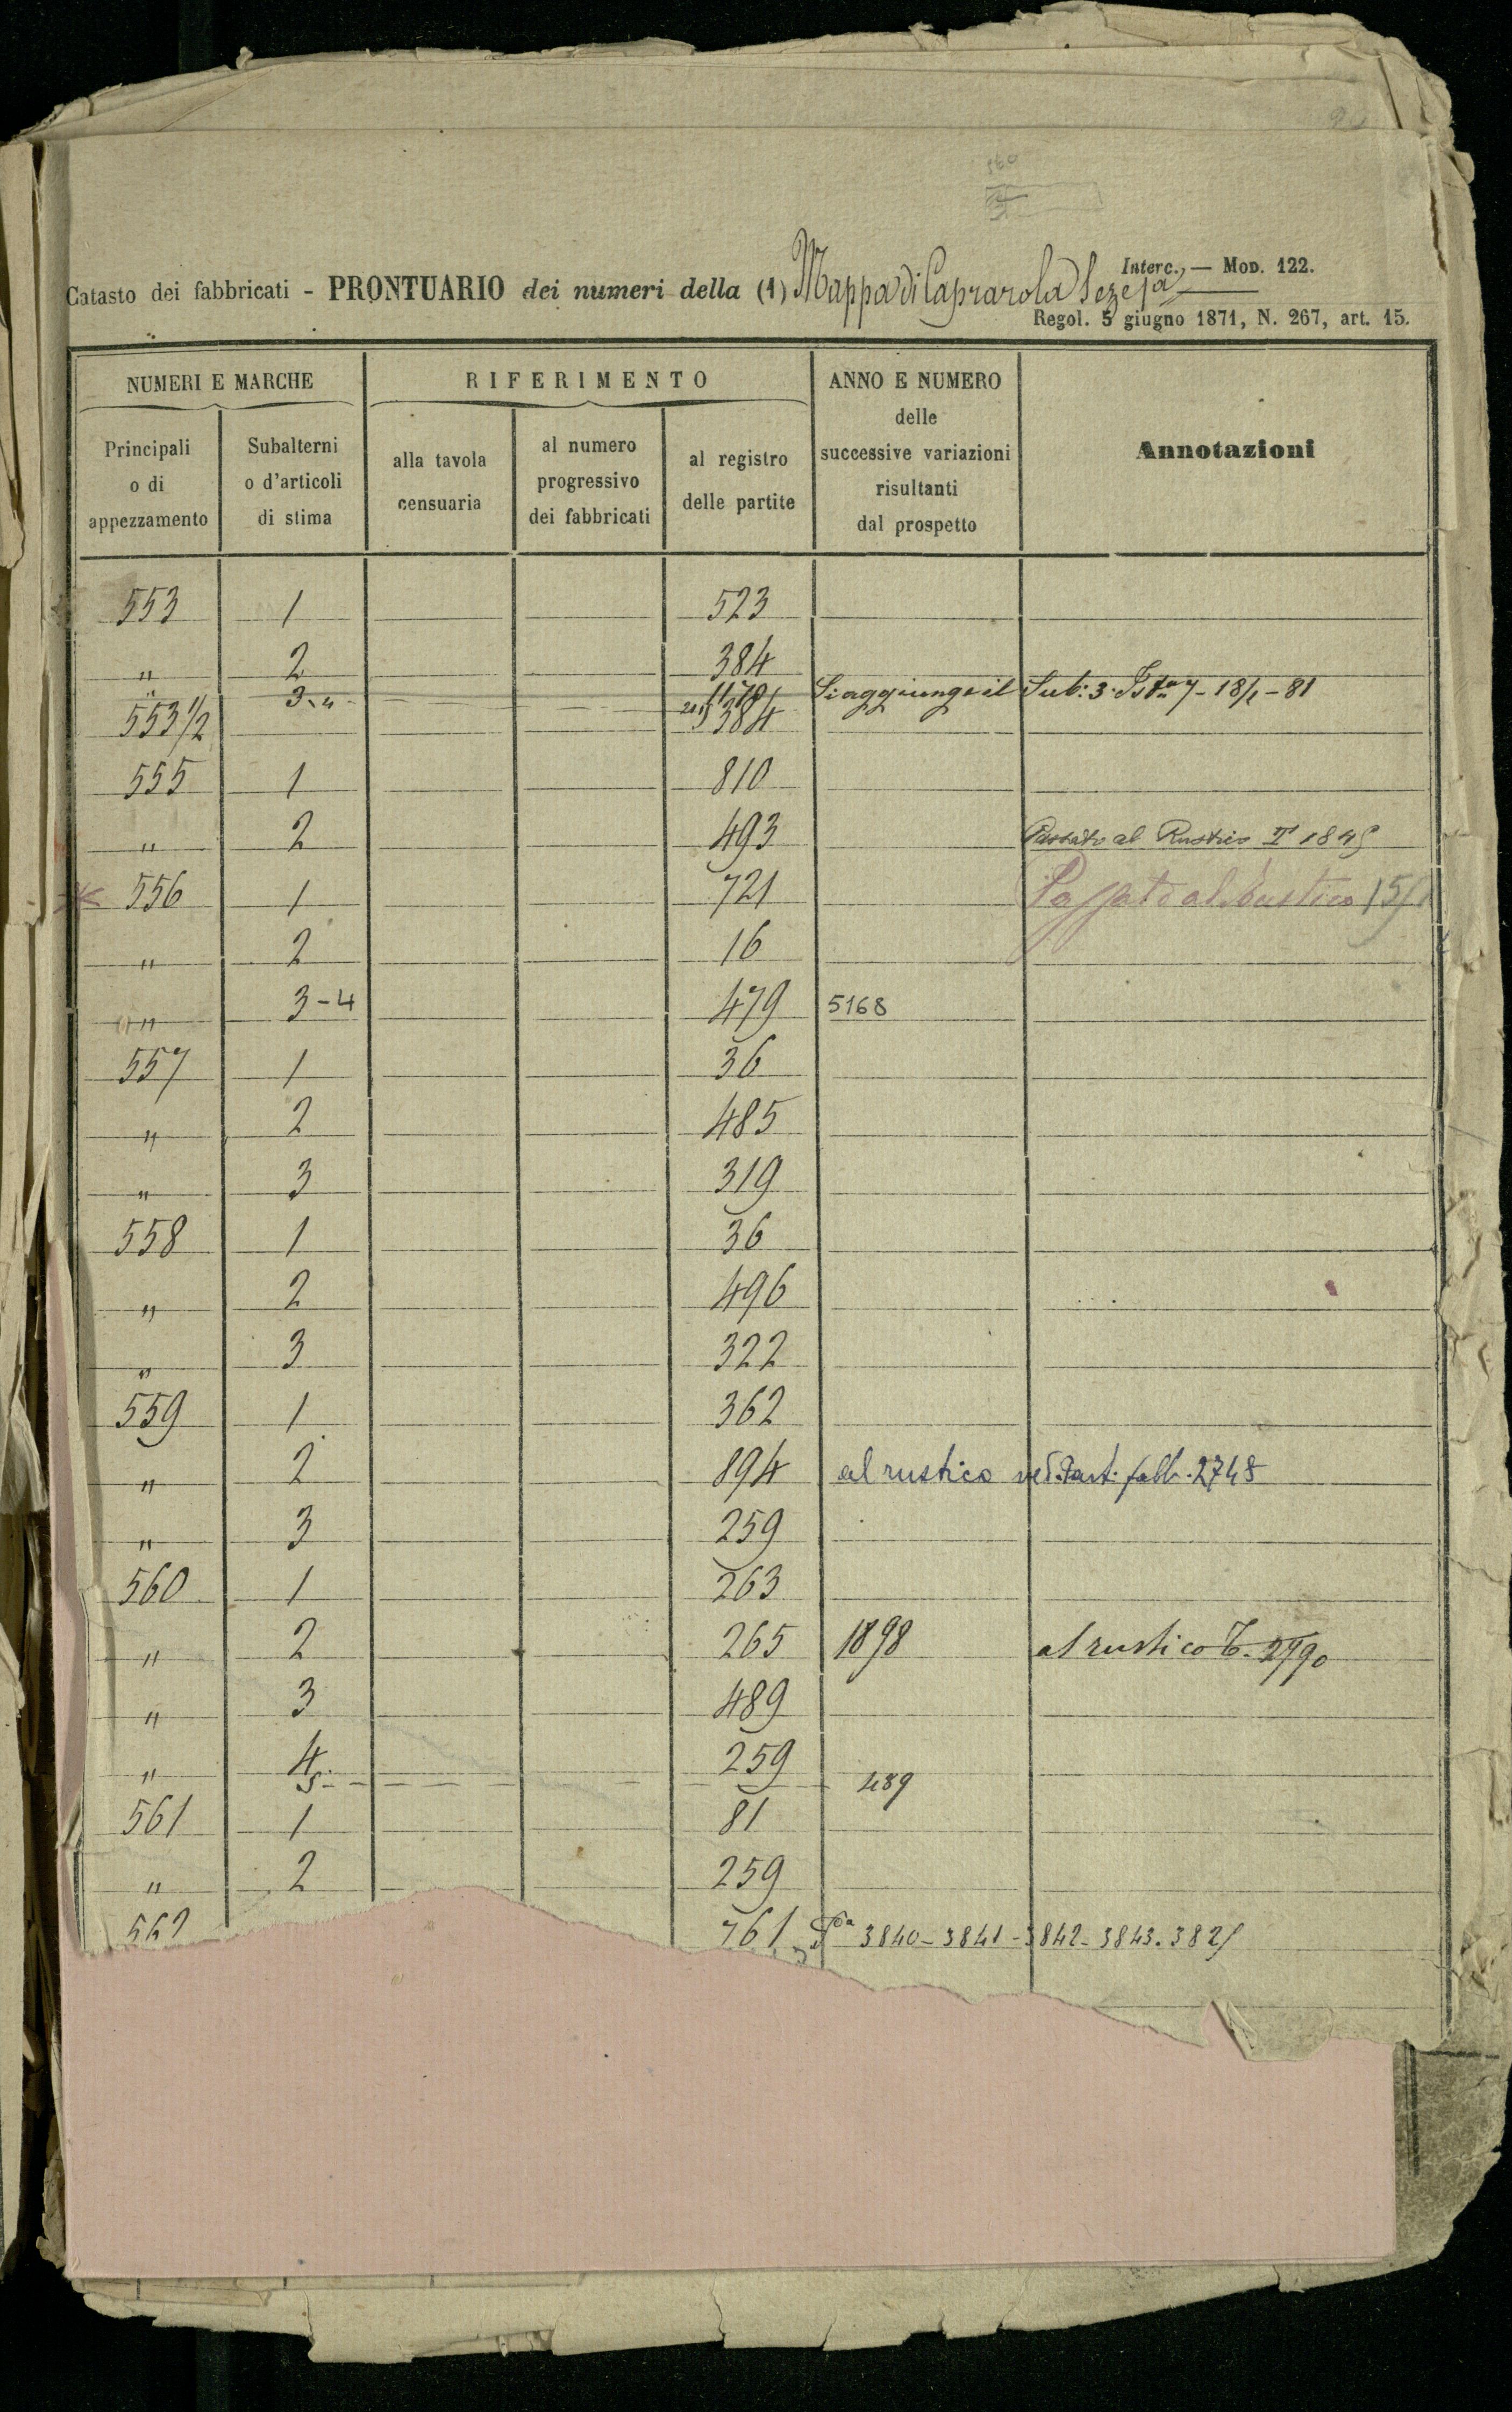 Catasto dei fabbricati - PRONTUARIO dei numeri della (1) Mappa di Caprarola Sez. 1a
Interc. — Mod. 122.
Regol. 5 giugno 1871, N. 267, art. 15.
NUMERI E MARCHE
RIFERIMENTO
ANNO E NUMERO delle successive variazioni risultanti dal prospetto
Annotazioni
Principali o di appezzamento
Subalterni o d'articoli di stima
alla tavola censuaria
al numero progressivo dei fabbricati
al registro delle partite
553 1 523
" 2 384
" 3 Si aggiunge il Sub: 3. 7 - 18/1 - 81
553 1/2 384
555 1 810
" 2 493 Passato al Rustico
556 1 721 Passato al Rustico
" 2 16
" 3-4 479 5168
557 1 36
" 2 485
" 3 319
558 1 36
" 2 496
" 3 322
559 1 362
" 2 894 al rustico ved. Part. fabb. 2748
" 3 259
560 1 263
" 2 265 1898 al rustico T. 2790
" 3 489
" 4 259
5 - 489
561 1 81
" 2 259
562 761 3840 - 3841 - 3842 - 3843. 382